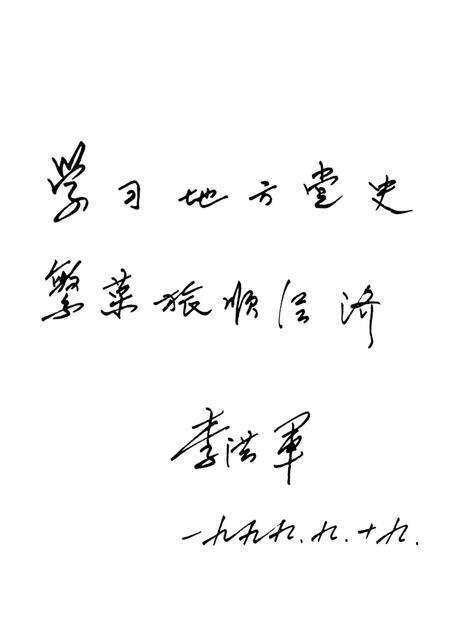 学习地方党史
繁荣旅顺经济
李洪军
一九九九.九.十九.